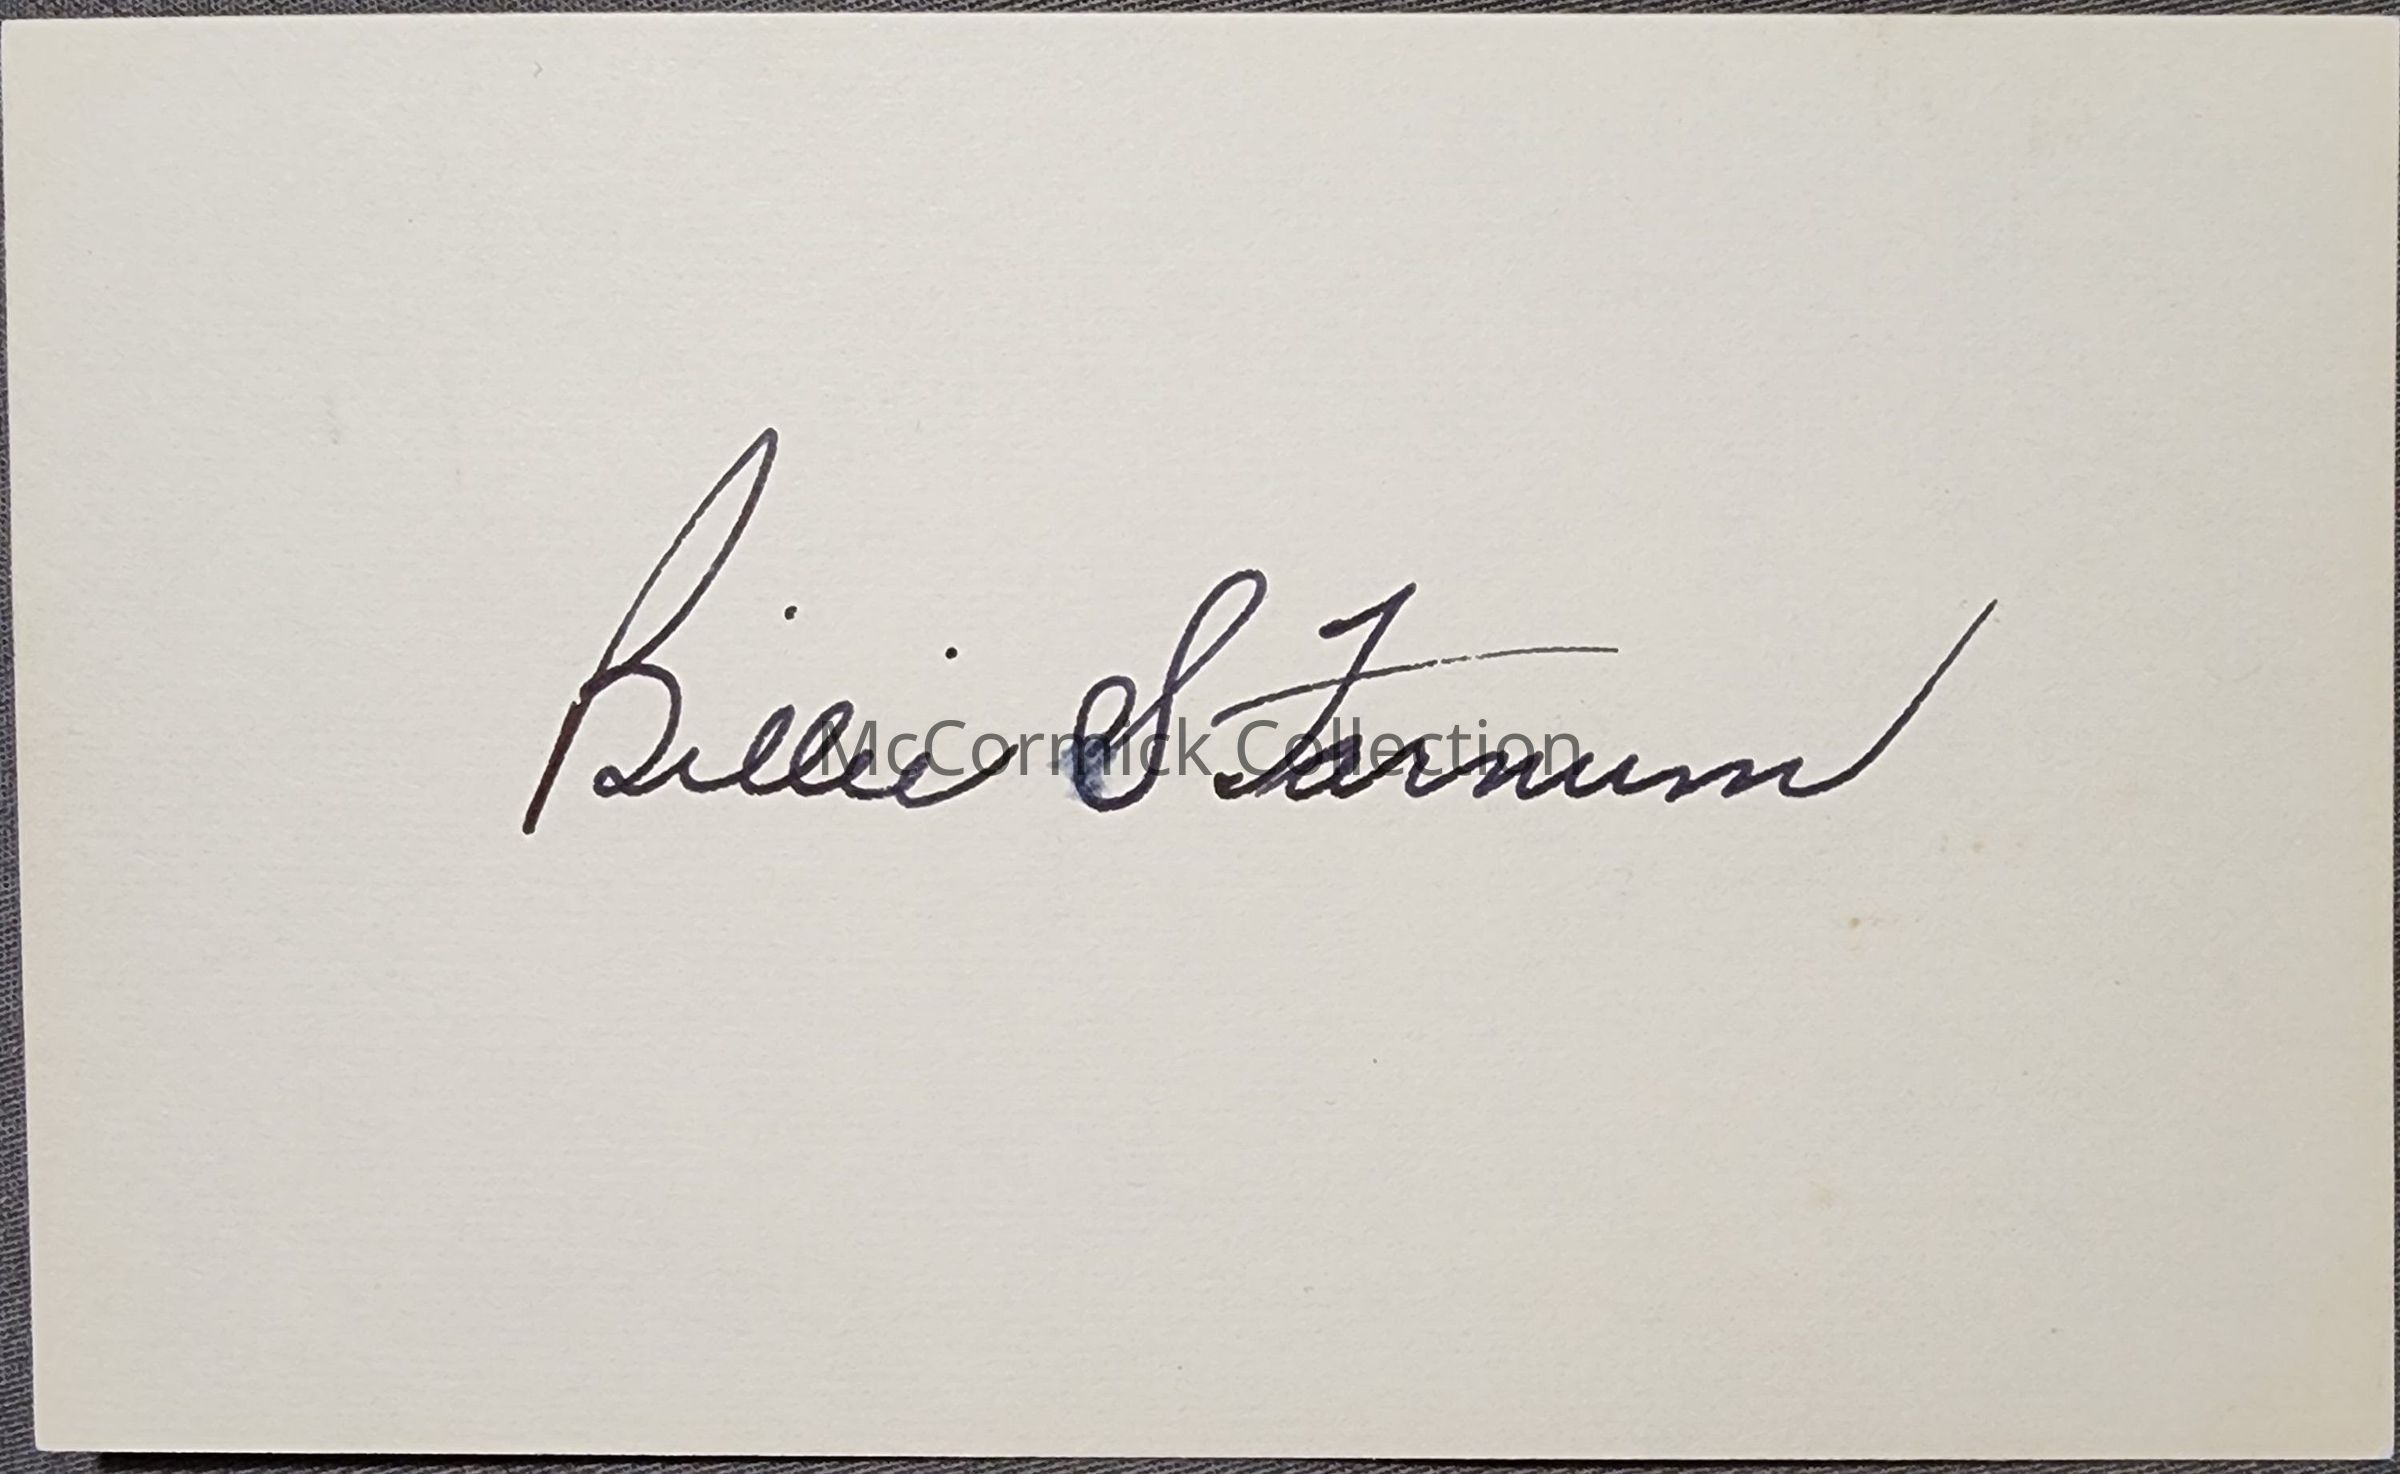 Billie S Farnum
McCormick Collection